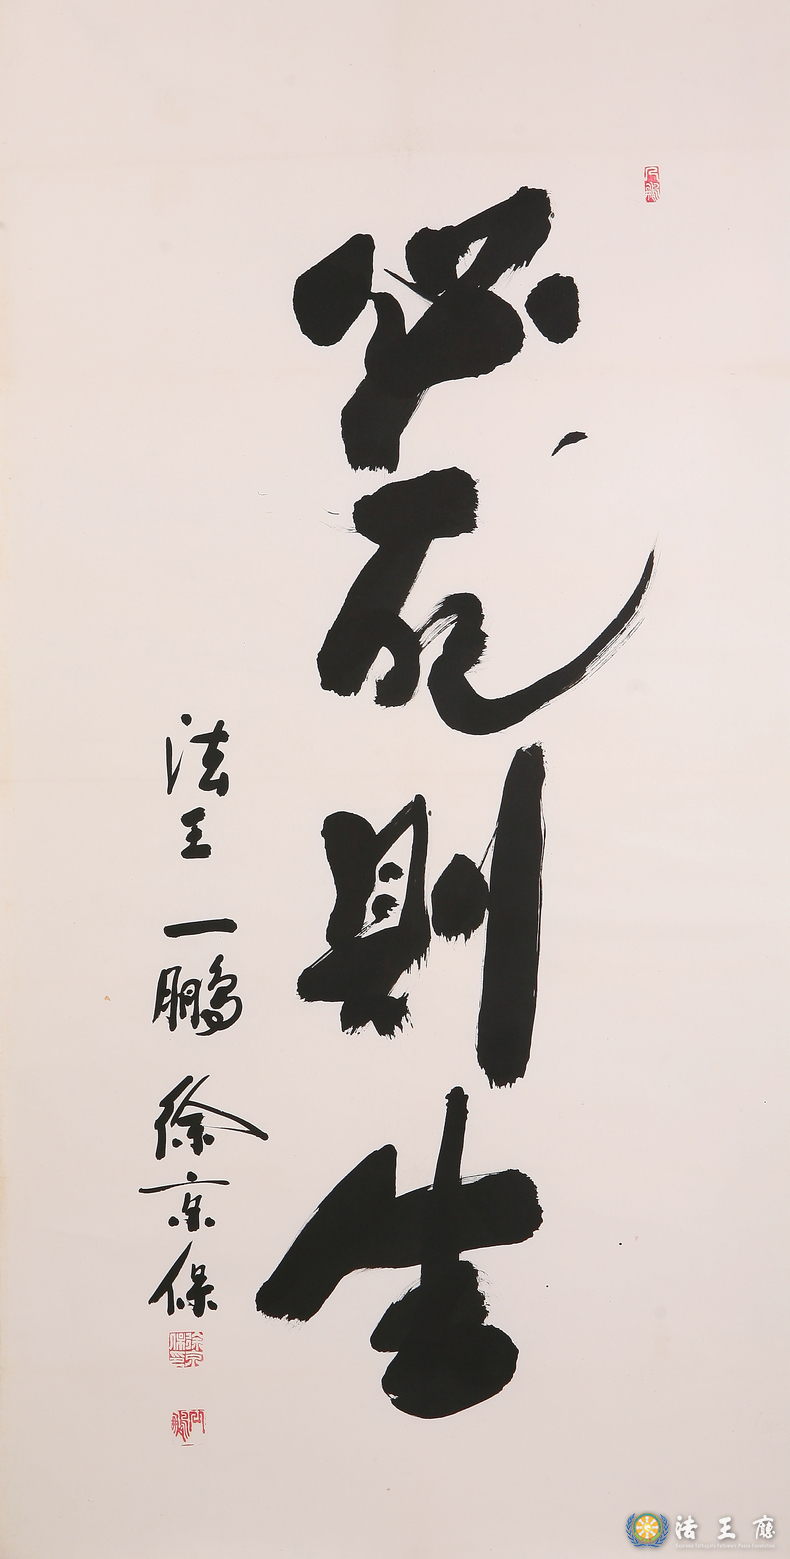 必死則生
法王一鵬徐京保
法王廳